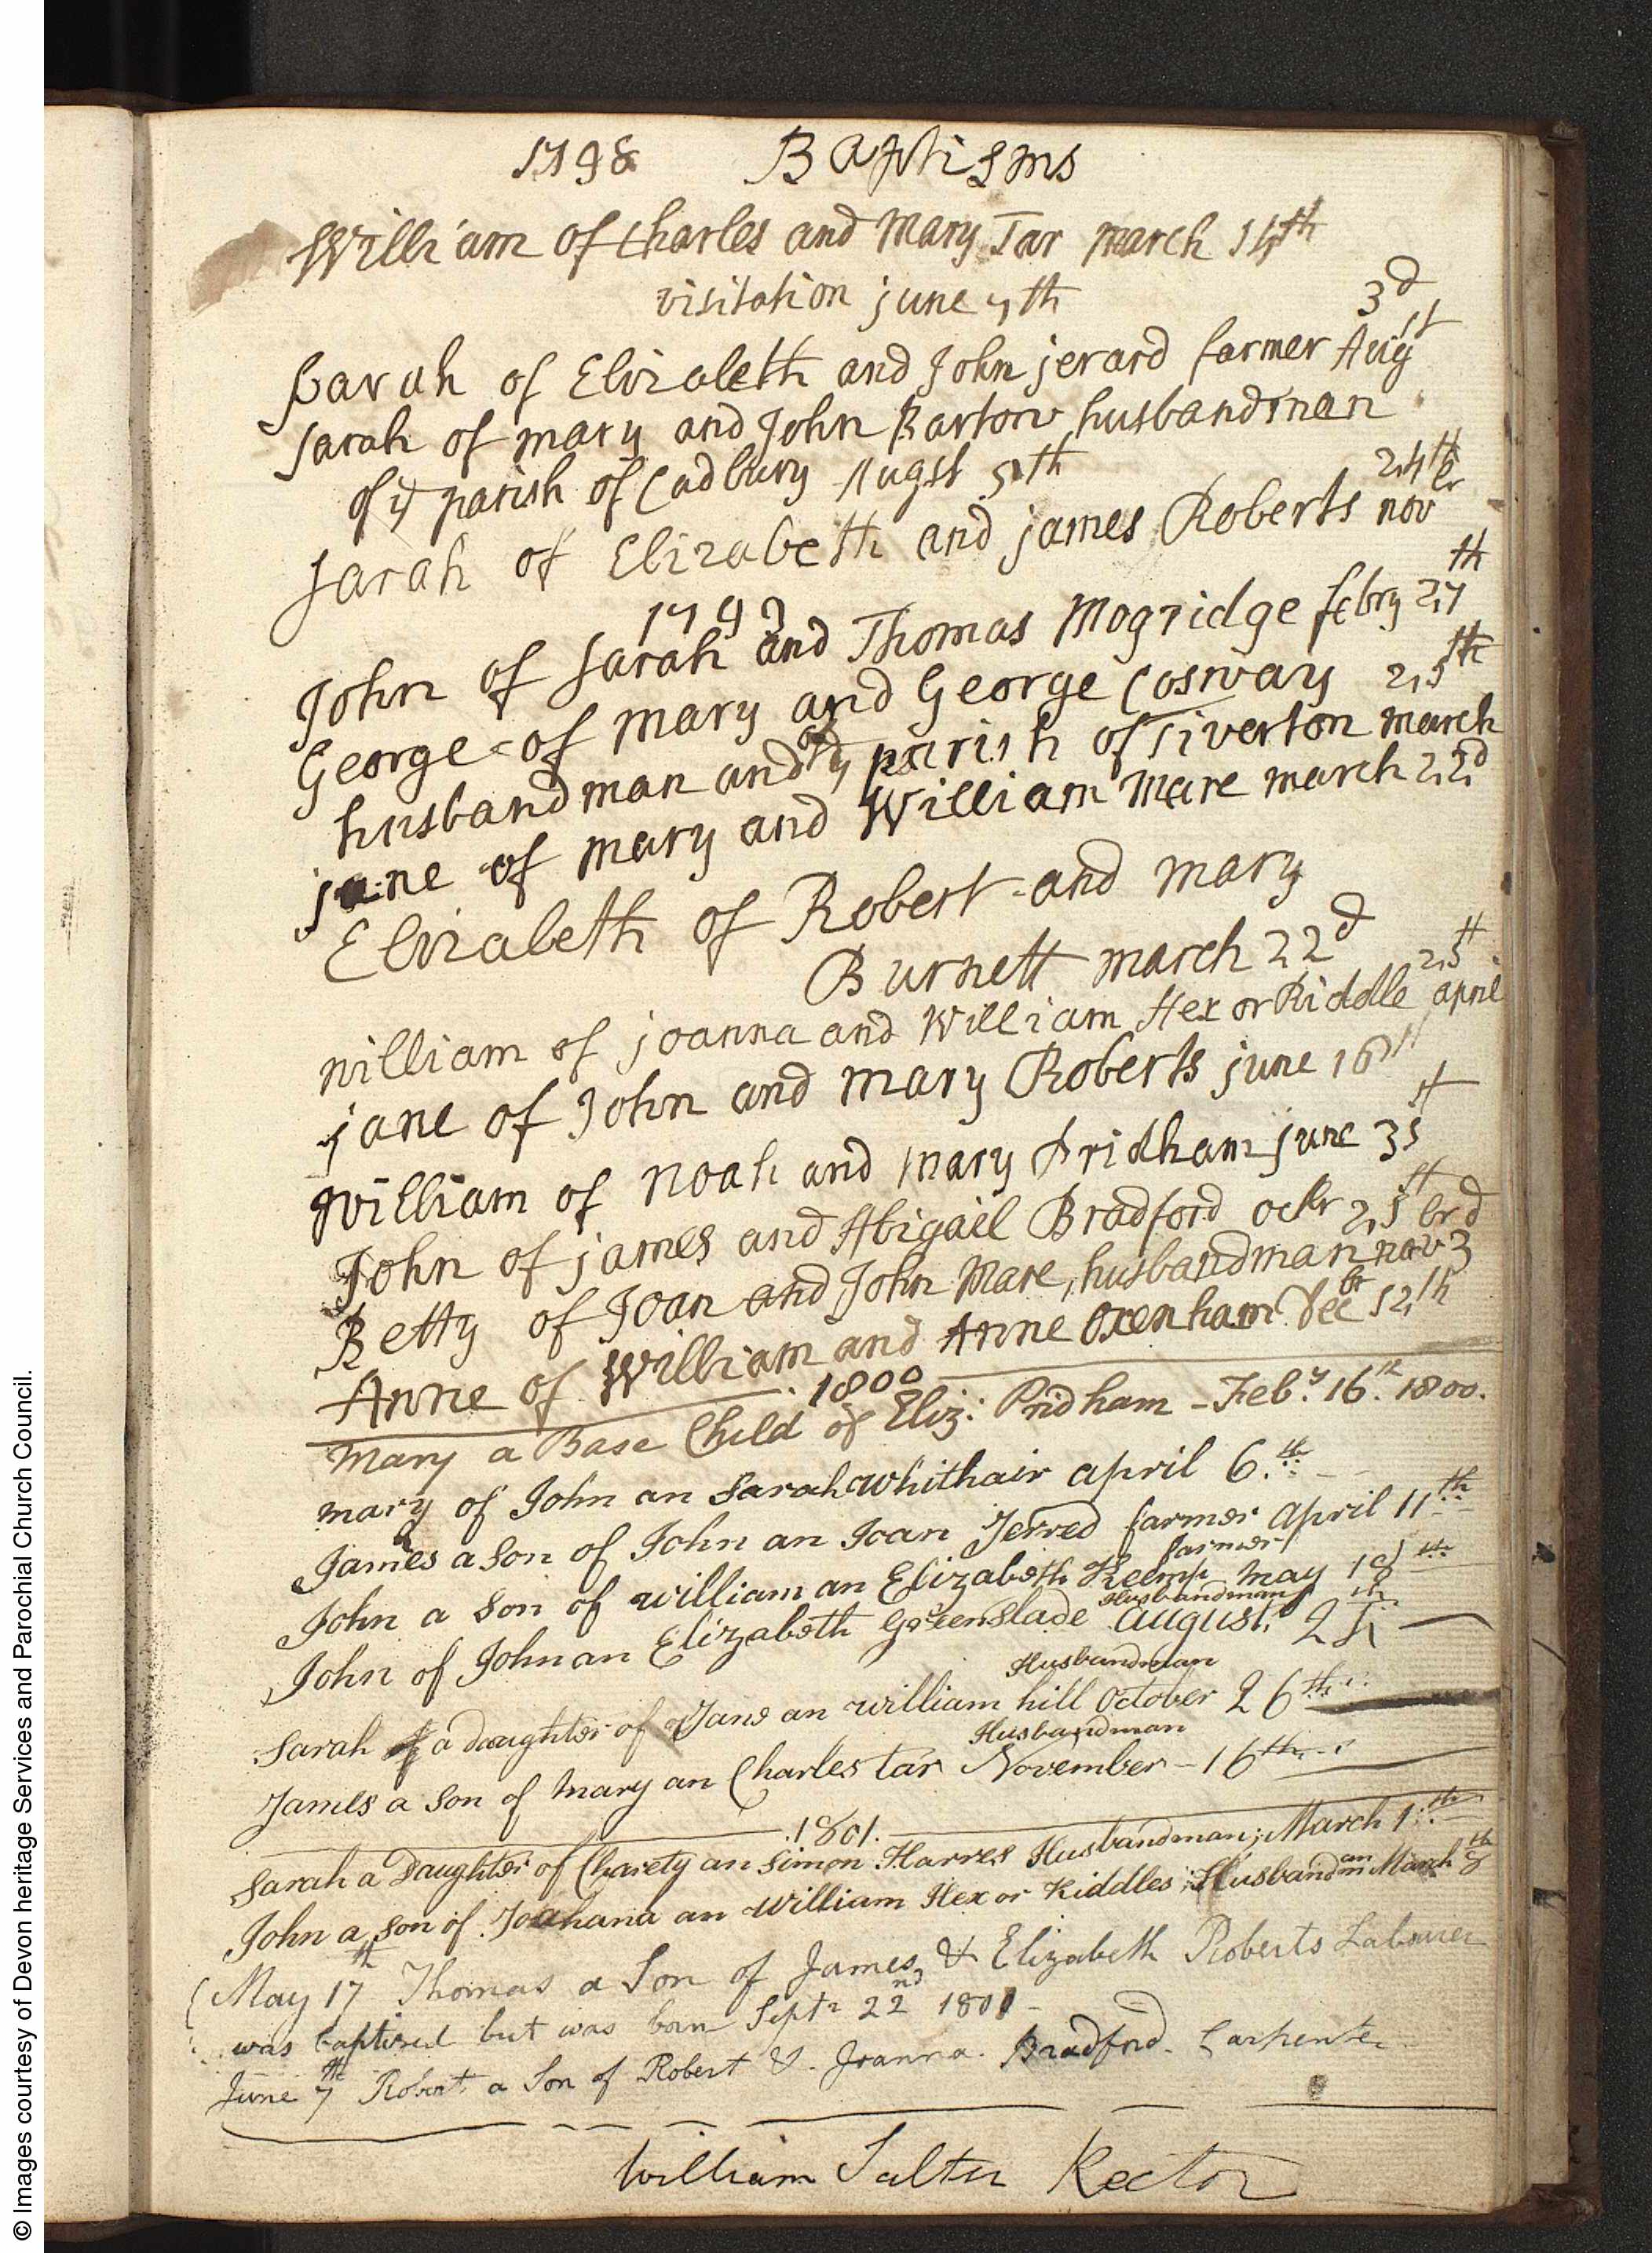 1798 Baptisms
William of Charles and Mary Tar march 14th
visitation june 7th
Sarah of Elizabeth and John jerard farmer Augst 3d
Sarah of mary and John Barton husbandman
of ye parish of Cadbury Augst 5th
Sarah of Elizabeth and james Roberts novbr 24th
1799
John of Sarah and Thomas Mogridge febry 27th
George of mary and George Cosway 25th
husbandman and of ye parish of Tiverton march
jane of mary and William Mare march 22d
Elizabeth of Robert and mary
Burnett march 22d
william of joanna and William Hex or Riddle april 25th
jane of John and mary Roberts june 16th
William of Noah and mary Pridham june
John of james and Abigail Bradford octbr 25th
Betty of Joan and John Mare, husbandman novbr 3d
Anne of William and Anne Oxenham Decbr 12th
1800
Mary a Base Child of Eliz: Pridham - Feb.y 16.th 1800.
mary of John an Sarah whithair april 6.th
James a Son of John an Joan Jerred farmer April 11th
farmer
John a Son of william an Elizabeth Keemp may 18th
Husbandman
John of John an Elizabeth Greenslade august
Husbandman
Sarah a daughter of Jane an william hill October 26th
Husbandman
James a Son of Mary an Charles tar November - 16th
1801.
Sarah a Daughter of Charety an Simon Harres Husbandman; March 1th
John a Son of Joahana an William Hex or Riddles Husbandman March 8th
May 17th Thomas a Son of James & Elizabeth Roberts Labourer
was baptized but was born Septr 22nd 1800
June 7th Robert a Son of Robert & Joanna Bradford. Carpenter
William Salter Rector
© Images courtesy of Devon heritage Services and Parochial Church Council.